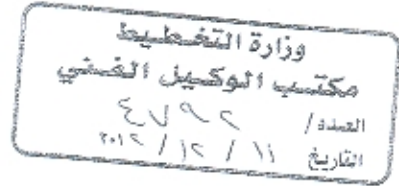 وزارة التخطيط
مكتب الوكيل الفني
العدد / ٤٧٩٢
التاريخ ١١ / ١٢ / ٢٠١٢